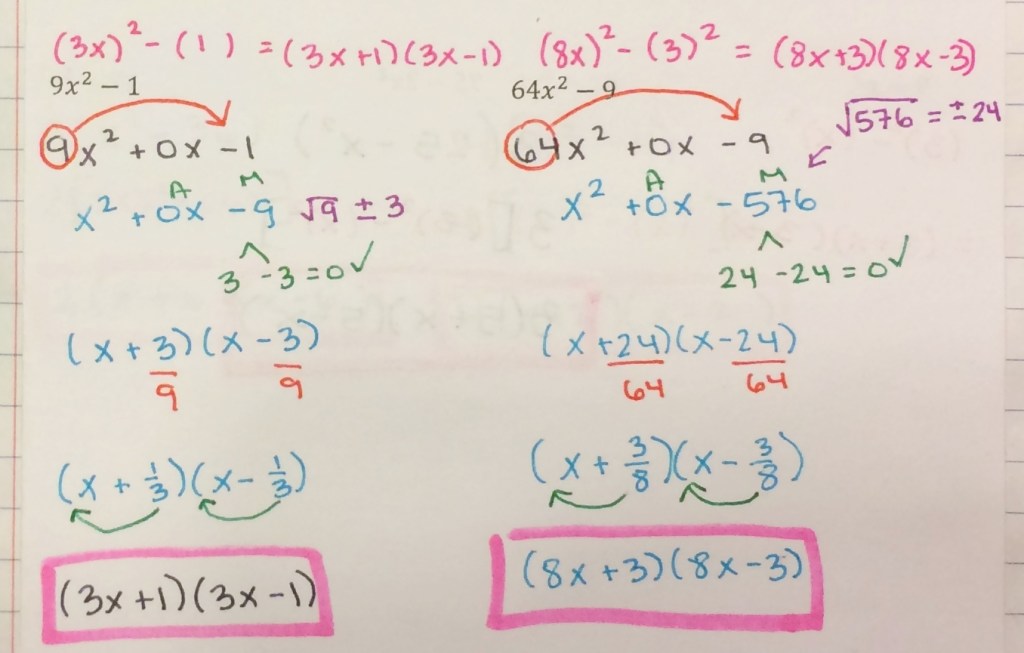 (3x)² - (1) = (3x+1)(3x-1)
9x² − 1
9x² + 0x - 1
A M
x² + 0x - 9 √9 ± 3
3 -3 = 0 ✓
(x + 3)(x - 3)
9 9
(x + 1/3)(x - 1/3)
(3x+1)(3x-1)
(8x)² - (3)² = (8x+3)(8x-3)
64x² − 9
√576 = ±24
64x² + 0x - 9
A M
x² + 0x - 576
24 - 24 = 0 ✓
(x+24)(x-24)
64 64
(x + 3/8)(x - 3/8)
(8x+3)(8x-3)